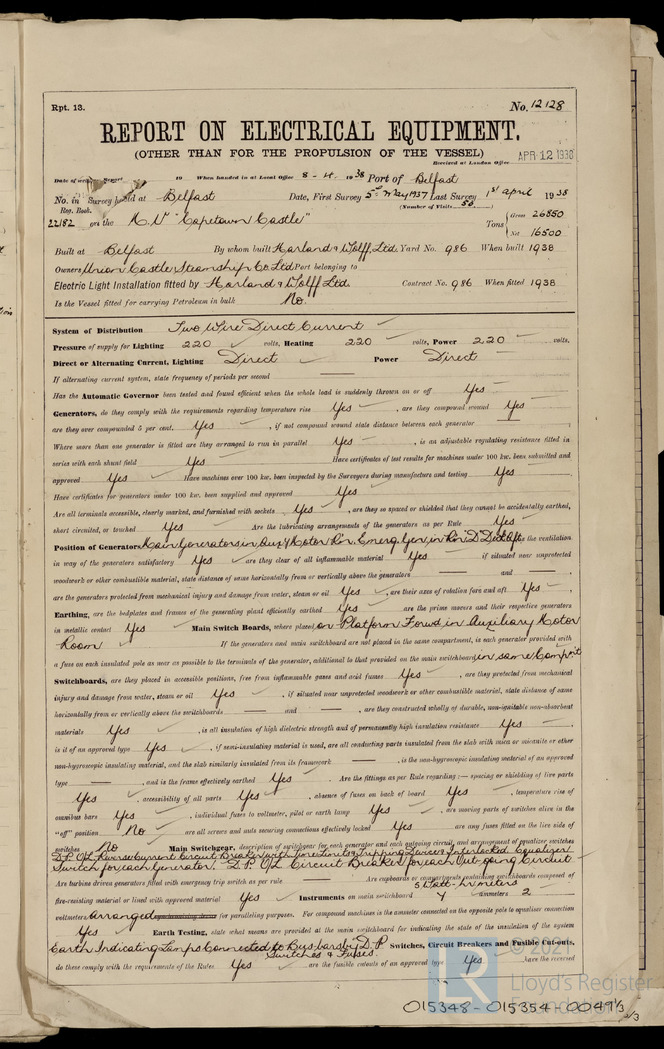 Rpt. 13.
No. 12128
REPORT ON ELECTRICAL EQUIPMENT.
(OTHER THAN FOR THE PROPULSION OF THE VESSEL)
Received at London Office APR 12 1938
Date of writing Report 19 When handed in at Local Office 8-4-1938 Port of Belfast
No. in Survey held at Belfast Date, First Survey 5th May 1937 Last Survey 1st April 1938
Reg. Book. (Number of Visits 50.)
22182 on the M.V. "Capetown Castle" Tons { Gross 26850
Net 16500
Built at Belfast By whom built Harland & Wolff, Ltd. Yard No. 986 When built 1938
Owners Union Castle Steamship Co. Ltd Port belonging to
Electric Light Installation fitted by Harland & Wolff Ltd. Contract No. 986 When fitted 1938
Is the Vessel fitted for carrying Petroleum in bulk No.
System of Distribution Two Wire Direct Current
Pressure of supply for Lighting 220 volts, Heating 220 volts, Power 220 volts.
Direct or Alternating Current, Lighting Direct Power Direct
If alternating current system, state frequency of periods per second
Has the Automatic Governor been tested and found efficient when the whole load is suddenly thrown on or off Yes
Generators, do they comply with the requirements regarding temperature rise Yes, are they compound wound Yes
are they over compounded 5 per cent. Yes, if not compound wound state distance between each generator
Where more than one generator is fitted are they arranged to run in parallel Yes, is an adjustable regulating resistance fitted in
series with each shunt field Yes Have certificates of test results for machines under 100 kw. been submitted and
approved Yes Have machines over 100 kw. been inspected by the Surveyors during manufacture and testing Yes
Have certificates for generators under 100 kw. been supplied and approved Yes
Are all terminals accessible, clearly marked, and furnished with sockets Yes, are they so spaced or shielded that they cannot be accidentally earthed,
short circuited, or touched Yes Are the lubricating arrangements of the generators as per Rule Yes
Position of Generators Main Generators in Aux. Motor Rm. Emerg. Gen. in Rm. "D" Dk. Aft, is the ventilation
in way of the generators satisfactory Yes are they clear of all inflammable material Yes if situated near unprotected
woodwork or other combustible material, state distance of same horizontally from or vertically above the generators and
are the generators protected from mechanical injury and damage from water, steam or oil Yes, are their axes of rotation fore and aft Yes
Earthing, are the bedplates and frames of the generating plant efficiently earthed Yes are the prime movers and their respective generators
in metallic contact Yes Main Switch Boards, where placed on Platform Forwd. in Auxiliary Motor
Room If the generators and main switchboard are not placed in the same compartment, is each generator provided with
a fuse on each insulated pole as near as possible to the terminals of the generator, additional to that provided on the main switchboard in same Compt.
Switchboards, are they placed in accessible positions, free from inflammable gases and acid fumes Yes, are they protected from mechanical
injury and damage from water, steam or oil Yes, if situated near unprotected woodwork or other combustible material, state distance of same
horizontally from or vertically above the switchboards and, are they constructed wholly of durable, non-ignitable non-absorbent
materials Yes, is all insulation of high dielectric strength and of permanently high insulation resistance Yes
is it of an approved type Yes, if semi-insulating material is used, are all conducting parts insulated from the slab with mica or micanite or other
non-hygroscopic insulating material, and the slab similarly insulated from its framework, is the non-hygroscopic insulating material of an approved
type, and is the frame effectively earthed Yes. Are the fittings as per Rule regarding:— spacing or shielding of live parts
Yes, accessibility of all parts Yes, absence of fuses on back of board Yes, temperature rise of
omnibus bars Yes, individual fuses to voltmeter, pilot or earth lamp Yes, are moving parts of switches alive in the
"off" position No are all screws and nuts securing connections effectively locked Yes are any fuses fitted on the live side of
switches No Main Switchgear, description of switchgear for each generator and each outgoing circuit, and arrangement of equalizer switches
D.P. O/L Reverse Current Circuit Breaker with Time Limits & Tripping Devices & Interlocked Equalizer
Switch for each Generator. D.P. O/L Circuit Breaker for each Out-going Circuit
Are turbine driven generators fitted with emergency trip switch as per rule Are cupboards or compartments containing switchboards composed of
fire-resisting material or lined with approved material Yes Instruments on main switchboard 5 Watt-hr meters 4 ammeters 2
voltmeters arranged for paralleling purposes. For compound machines is the ammeter connected on the opposite pole to equaliser connection
Yes Earth Testing, state what means are provided at the main switchboard for indicating the state of the insulation of the system
Earth Indicating Lamps Connected to Busbars by D.P. Switches, Circuit Breakers and Fusible Cut-outs,
Switches & Fuses.
do these comply with the requirements of the Rules Yes are the fusible cutouts of an approved type Yes have the reversed
© 2021
Lloyd's Register
Foundation
015348-015354-0049 1/3